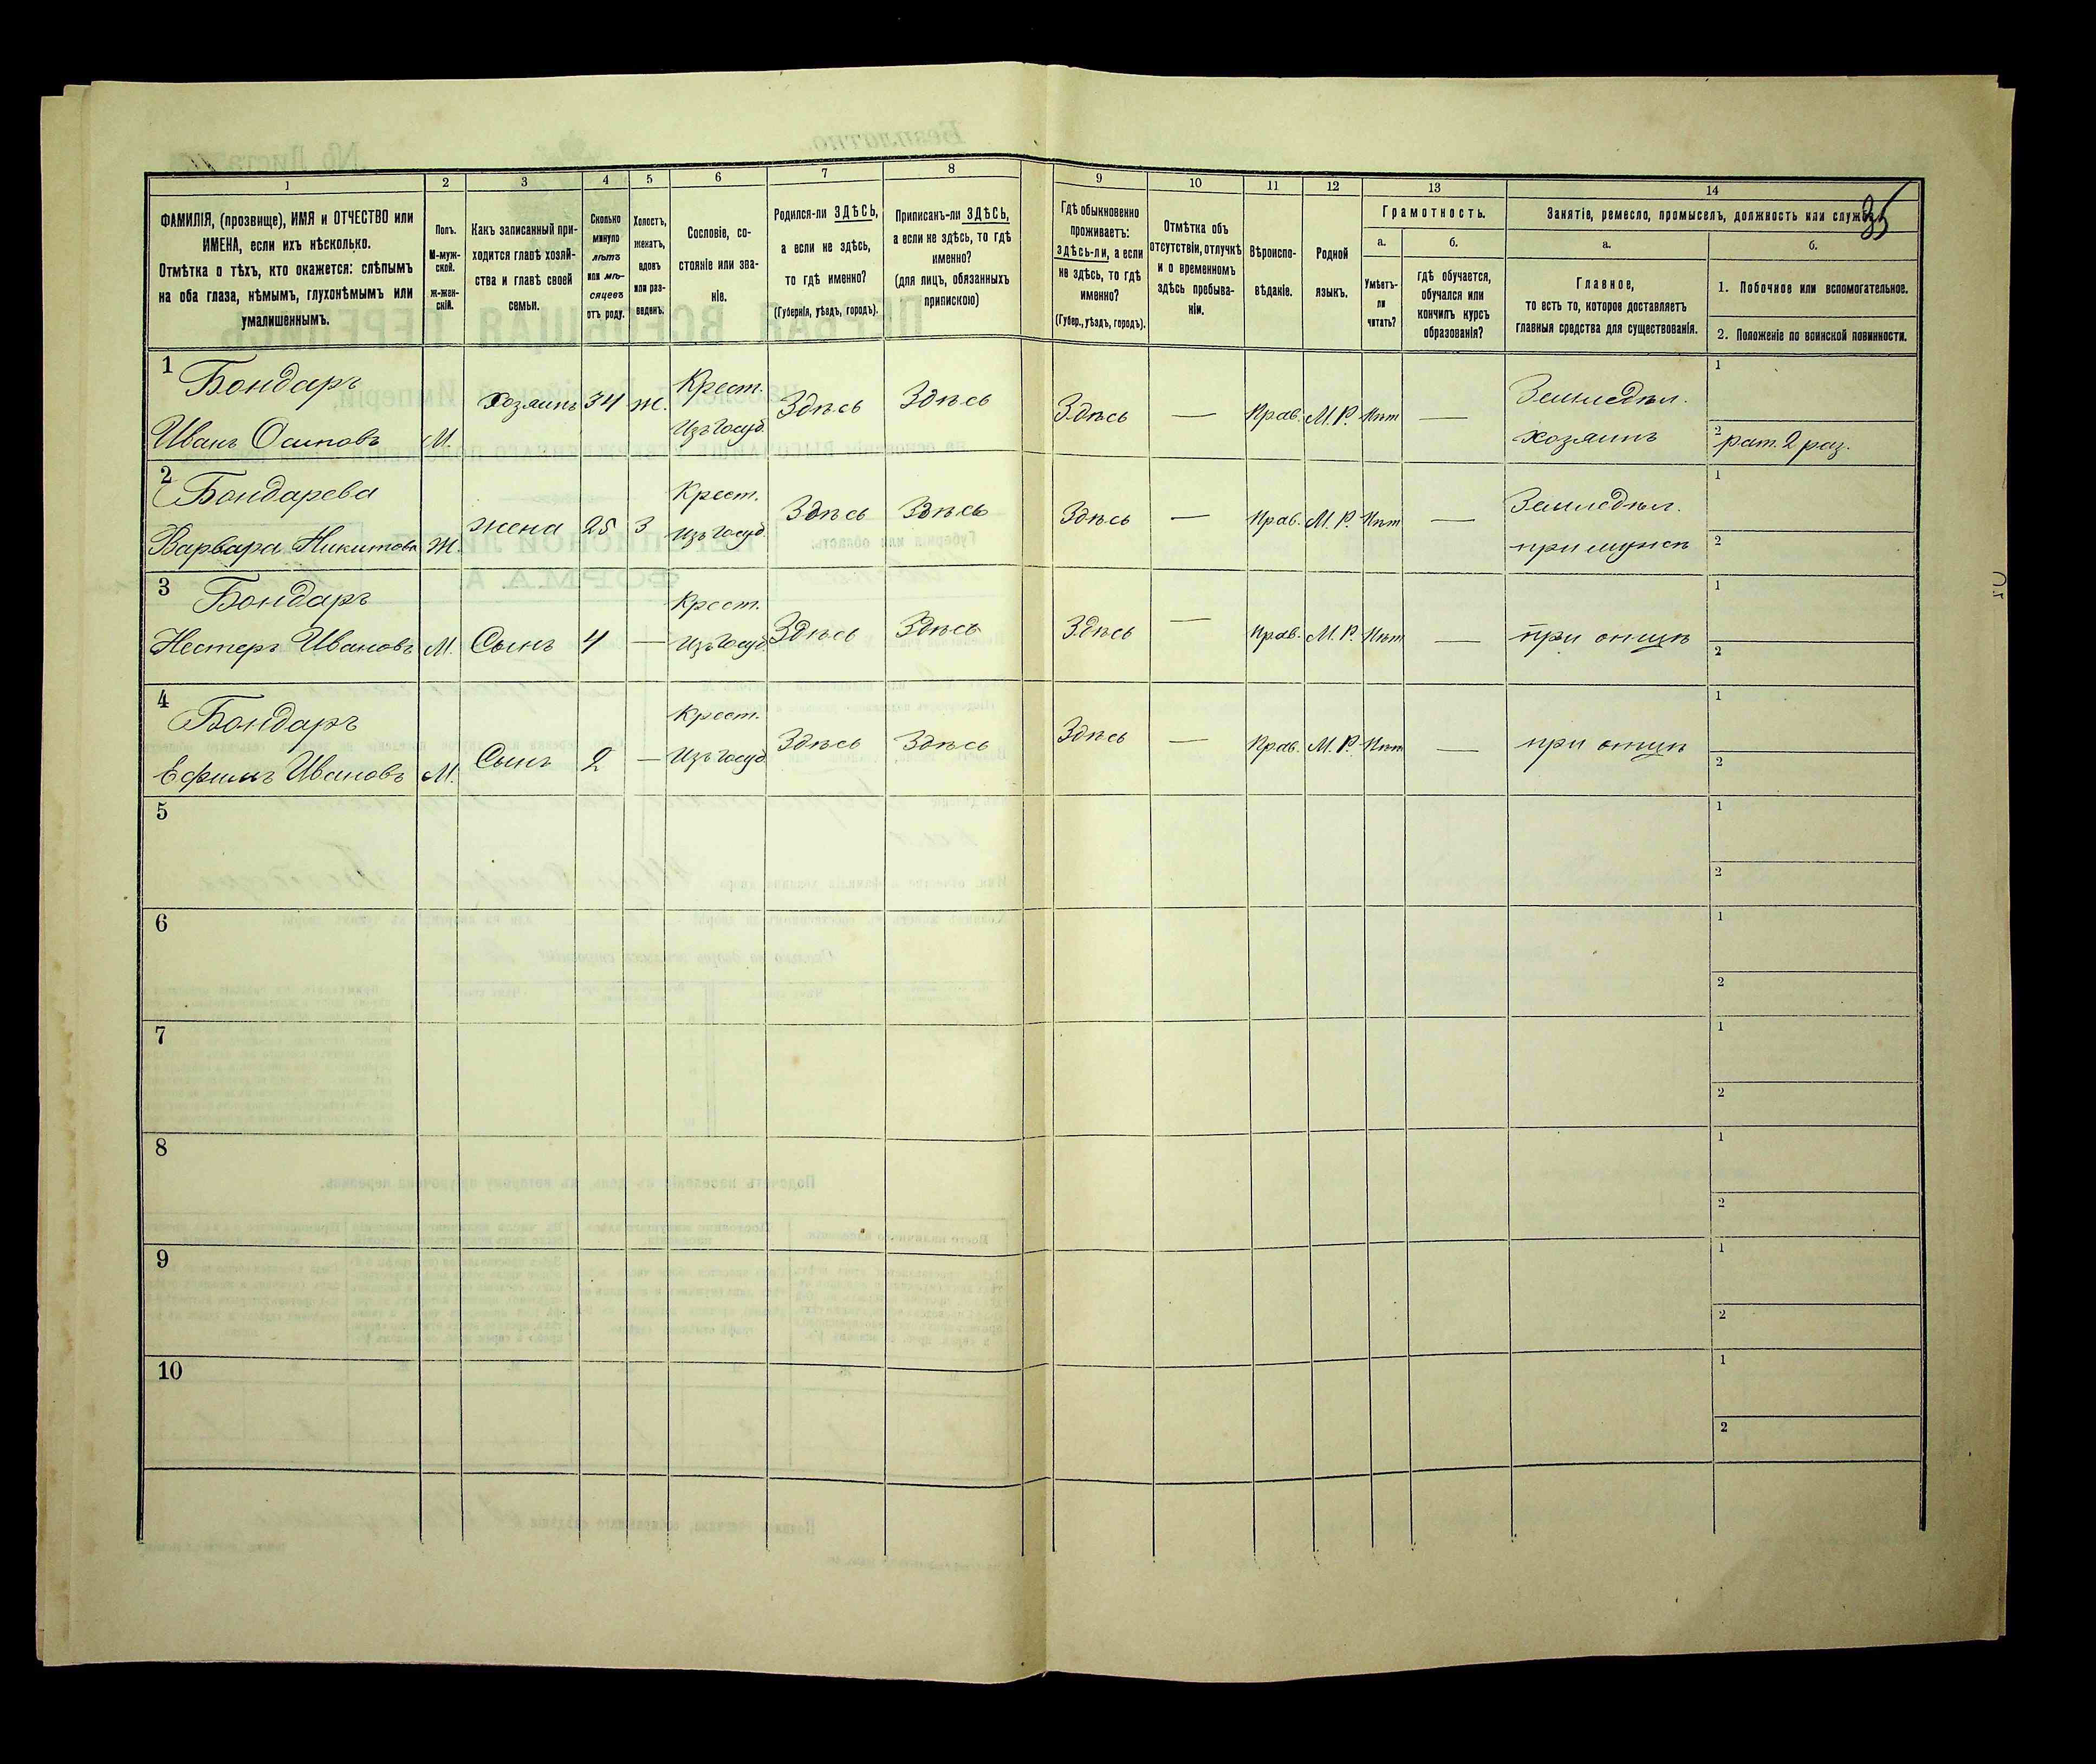 35
1
2
3
4
5
6
7
8
9
10
11
12
13
14
ФАМИЛІЯ, (прозвище), ИМЯ и ОТЧЕСТВО или
ИМЕНА, если ихъ нѣсколько.
Отмѣтка о тѣхъ, кто окажется: слѣпымъ
на оба глаза, нѣмымъ, глухонѣмымъ или
умалишеннымъ.
Полъ.
М-муж-
ской.
ж-жен-
скій.
Какъ записанный при-
ходится главѣ хозяй-
ства и главѣ своей
семьи.
Сколько
минуло
лѣтъ
или мѣ-
сяцевъ
отъ роду.
Холостъ,
женатъ,
вдовъ
или раз-
веденъ.
Сословіе, со-
стояніе или зва-
ніе.
Родился-ли ЗДѢСЬ,
а если не здѣсь,
то гдѣ именно?
(Губернія, уѣздъ, городъ).
Приписанъ-ли ЗДѢСЬ,
а если не здѣсь, то гдѣ
именно?
(для лицъ, обязанныхъ
припискою)
Гдѣ обыкновенно
проживаетъ:
здѣсь-ли, а если
не здѣсь, то гдѣ
именно?
(Губер., уѣздъ, городъ).
Отмѣтка объ
отсутствіи, отлучкѣ
и о временномъ
здѣсь пребыва-
ніи.
Вѣроиспо-
вѣданіе.
Родной
языкъ.
Грамотность.
а.
Умѣетъ-
ли
читать?
б.
гдѣ обучается,
обучался или
кончилъ курсъ
образованія?
Занятіе, ремесло, промыселъ, должность или служба.
а.
Главное,
то есть то, которое доставляетъ
главныя средства для существованія.
б.
1. Побочное или вспомогательное.
2. Положеніе по воинской повинности.
1 Бондаръ
Иванъ Осиповъ М. Хозяинъ 34 Ж. Крест. Изъ Госуд. Здѣсь Здѣсь Здѣсь — Прав. М. Р. Нѣт — Земледѣл. хозяинъ 1
2 рат. 2 раз.
2 Бондарева
Варвара Никитова Ж. жена 25 З Крест. Изъ Госуд. Здѣсь Здѣсь Здѣсь — Прав. М. Р. Нѣт — Земледѣл. при мужѣ 1
2
3 Бондаръ
Нестеръ Ивановъ М. Сынъ 4 — Крест. Изъ Госуд. Здѣсь Здѣсь Здѣсь — Прав. М. Р. Нѣт — при отцѣ 1
2
4 Бондаръ
Ефимъ Ивановъ М. Сынъ 2 — Крест. Изъ Госуд. Здѣсь Здѣсь Здѣсь — Прав. М. Р. Нѣт — при отцѣ 1
2
5 1
2
6 1
2
7 1
2
8 1
2
9 1
2
10 1
2